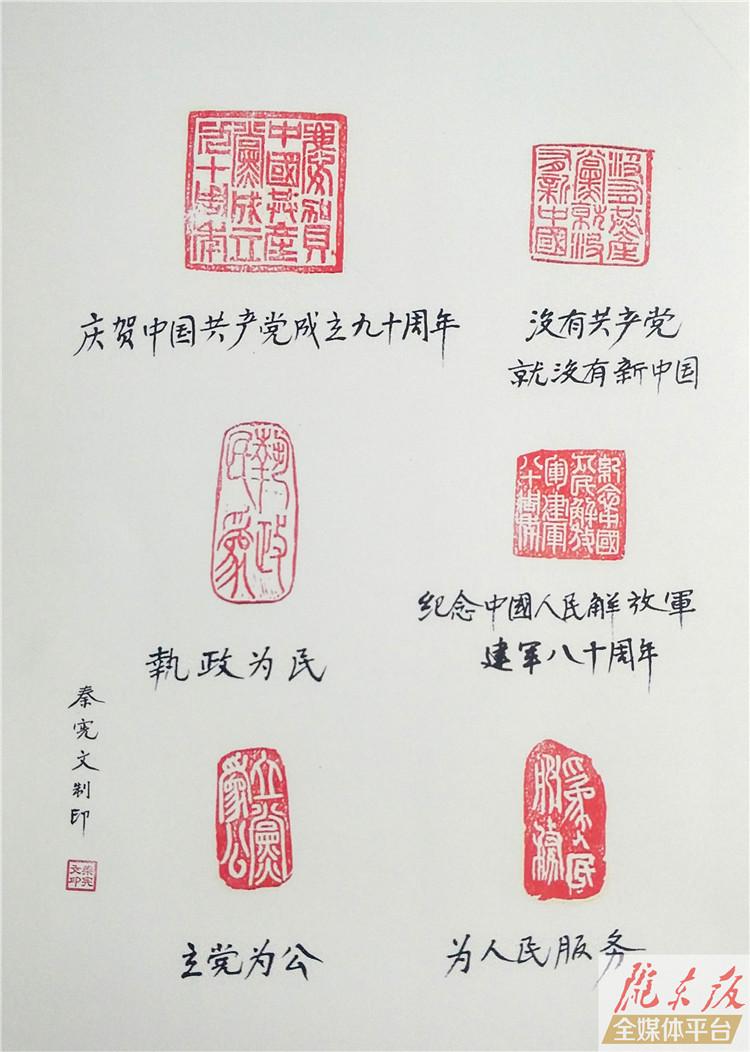 庆贺中国共产党成立九十周年
没有共产党
就没有新中国
執政为民
纪念中國人民解放軍
建军八十周年
立党为公
为人民服务
秦宪文制印
陇东报
全媒体平台